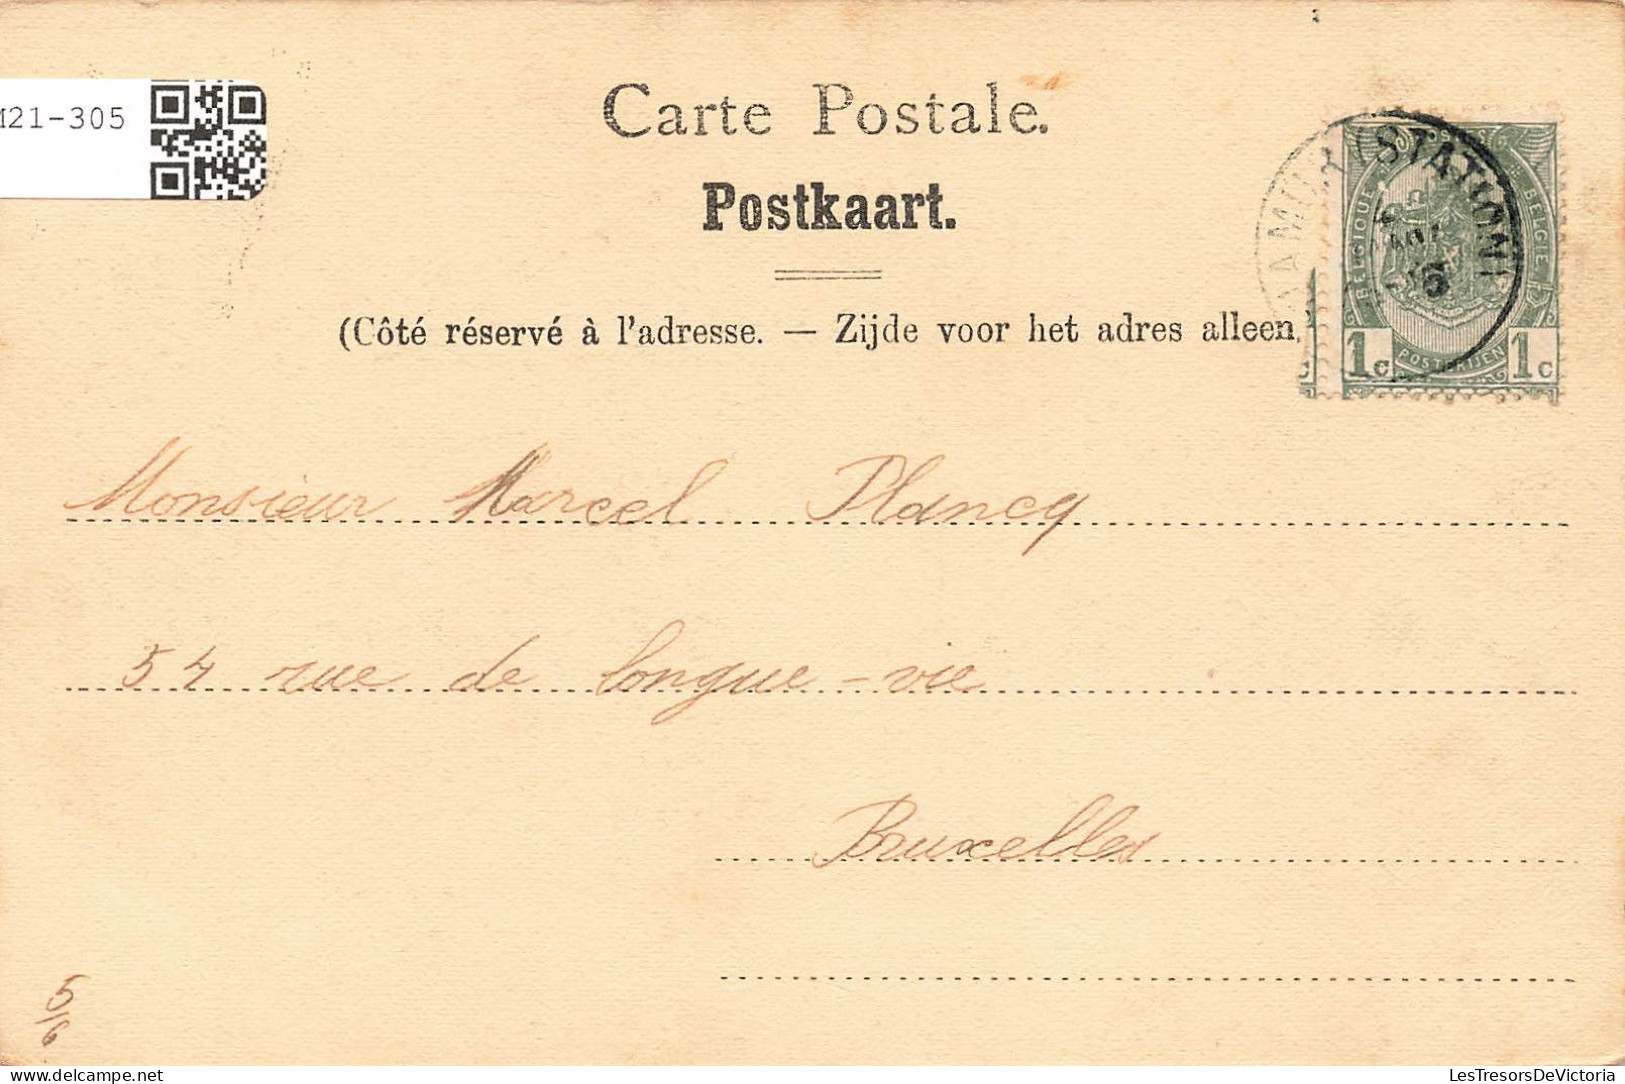 M21-305
Carte Postale.
Postkaart.
(Côté réservé à l'adresse. — Zijde voor het adres alleen.
(STATION)
5
BELGIQUE BELGIE
1c POSTERIJEN 1c
Monsieur Marcel Plancq
54 rue de longue-vie
Bruxelles
5/6
delcampe.net
LesTresorsDeVictoria